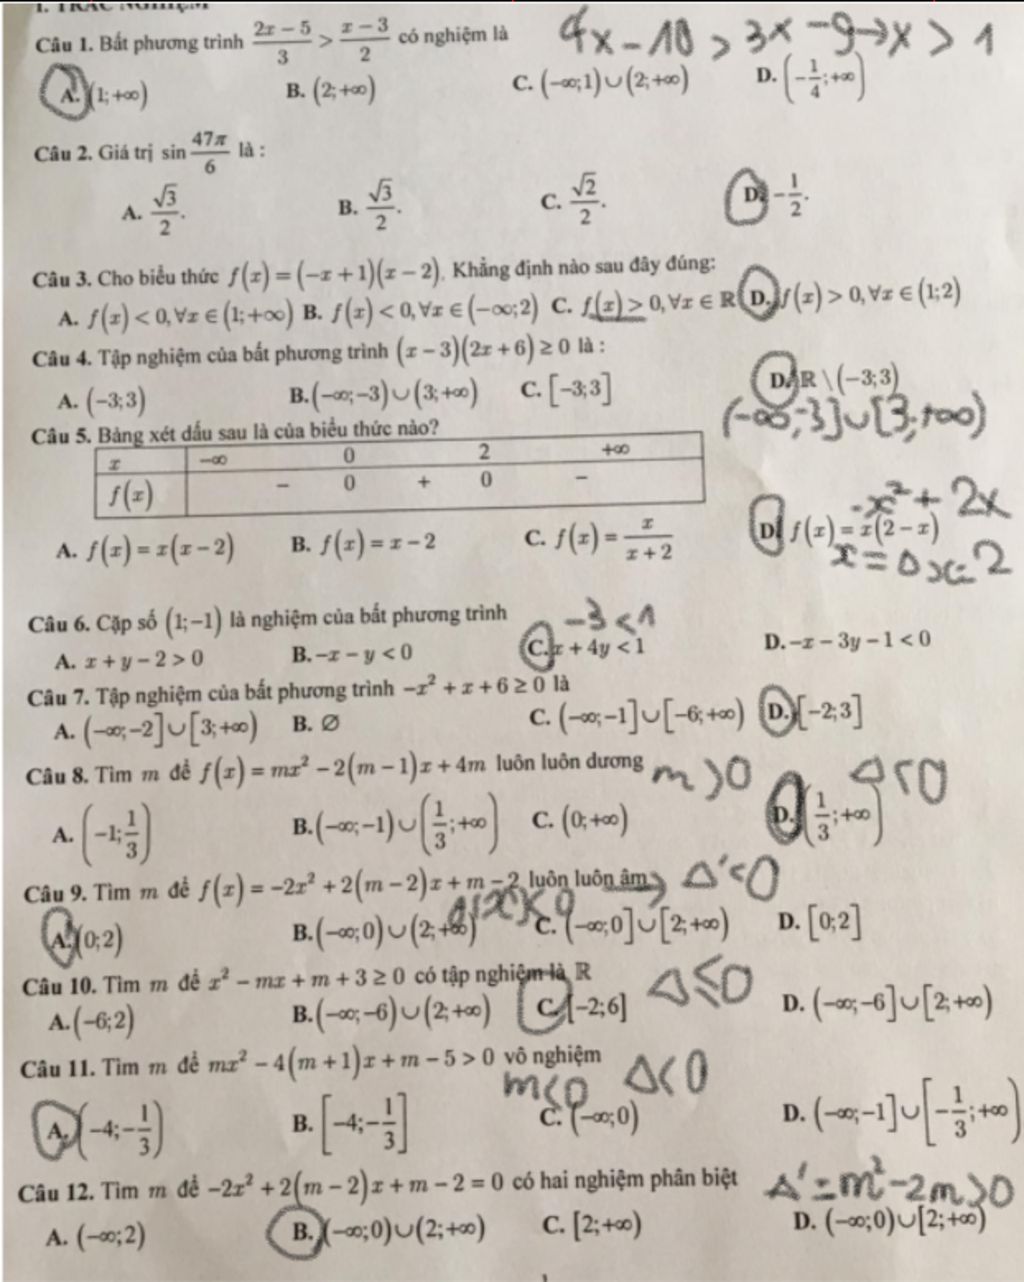 I. TRẮC NGHIỆM
Câu 1. Bất phương trình (2x − 5)/3 > (x − 3)/2 có nghiệm là 4x − 10 > 3x − 9 → x > 1
A. (1; +∞) B. (2; +∞) C. (−∞; 1) ∪ (2; +∞) D. (−1/4; +∞)
Câu 2. Giá trị sin 47π/6 là :
A. √3/2. B. √3/2. C. √2/2. D. −1/2.
Câu 3. Cho biểu thức f(x) = (−x + 1)(x − 2). Khẳng định nào sau đây đúng:
A. f(x) < 0, ∀x ∈ (1; +∞) B. f(x) < 0, ∀x ∈ (−∞; 2) C. f(x) > 0, ∀x ∈ ℝ D. f(x) > 0, ∀x ∈ (1; 2)
Câu 4. Tập nghiệm của bất phương trình (x − 3)(2x + 6) ≥ 0 là :
A. (−3; 3) B. (−∞; −3) ∪ (3; +∞) C. [−3; 3] D. ℝ \ (−3; 3)
(−∞; −3] ∪ [3; +∞)
Câu 5. Bảng xét dấu sau là của biểu thức nào?
x −∞ 0 2 +∞
f(x) − 0 + 0 −
−x² + 2x
A. f(x) = x(x − 2) B. f(x) = x − 2 C. f(x) = x/(x + 2) D. f(x) = x(2 − x)
x = 0 x = 2
Câu 6. Cặp số (1; −1) là nghiệm của bất phương trình −3 < 1
A. x + y − 2 > 0 B. −x − y < 0 C. x + 4y < 1 D. −x − 3y − 1 < 0
Câu 7. Tập nghiệm của bất phương trình −x² + x + 6 ≥ 0 là
A. (−∞; −2] ∪ [3; +∞) B. ∅ C. (−∞; −1] ∪ [−6; +∞) D. [−2; 3]
Câu 8. Tìm m để f(x) = mx² − 2(m − 1)x + 4m luôn luôn dương m > 0 Δ < 0
A. (−1; 1/3) B. (−∞; −1) ∪ (1/3; +∞) C. (0; +∞) D. (1/3; +∞)
Câu 9. Tìm m để f(x) = −2x² + 2(m − 2)x + m − 2 luôn luôn âm Δ' < 0
A. (0; 2) B. (−∞; 0) ∪ (2; +∞) C. (−∞; 0] ∪ [2; +∞) D. [0; 2]
Câu 10. Tìm m để x² − mx + m + 3 ≥ 0 có tập nghiệm là ℝ Δ ≤ 0
A. (−6; 2) B. (−∞; −6) ∪ (2; +∞) C. [−2; 6] D. (−∞; −6] ∪ [2; +∞)
Câu 11. Tìm m để mx² − 4(m + 1)x + m − 5 > 0 vô nghiệm
m < 0 Δ < 0
A. (−4; −1/3) B. [−4; −1/3] C. (−∞; 0) D. (−∞; −1] ∪ [−1/3; +∞)
Câu 12. Tìm m để −2x² + 2(m − 2)x + m − 2 = 0 có hai nghiệm phân biệt Δ' = m² − 2m > 0
A. (−∞; 2) B. (−∞; 0) ∪ (2; +∞) C. [2; +∞) D. (−∞; 0) ∪ [2; +∞)
1